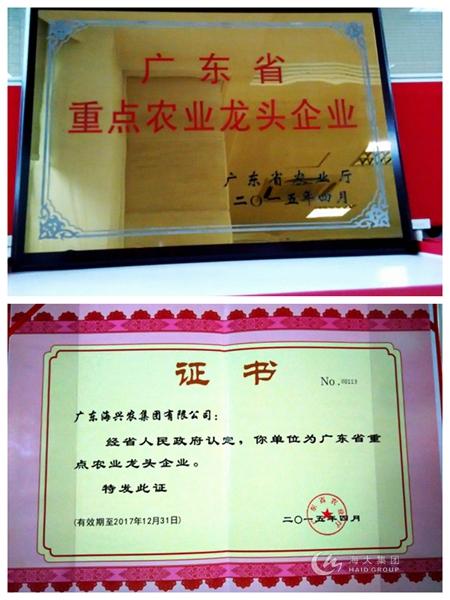 广东省
重点农业龙头企业
广东省农业厅
二〇一五年四月
证书
No.00113
广东海兴农集团有限公司：
经省人民政府认定，你单位为广东省重
点农业龙头企业。
特发此证
(有效期至2017年12月31日)
二〇一五年四月
海大集团
HAID GROUP